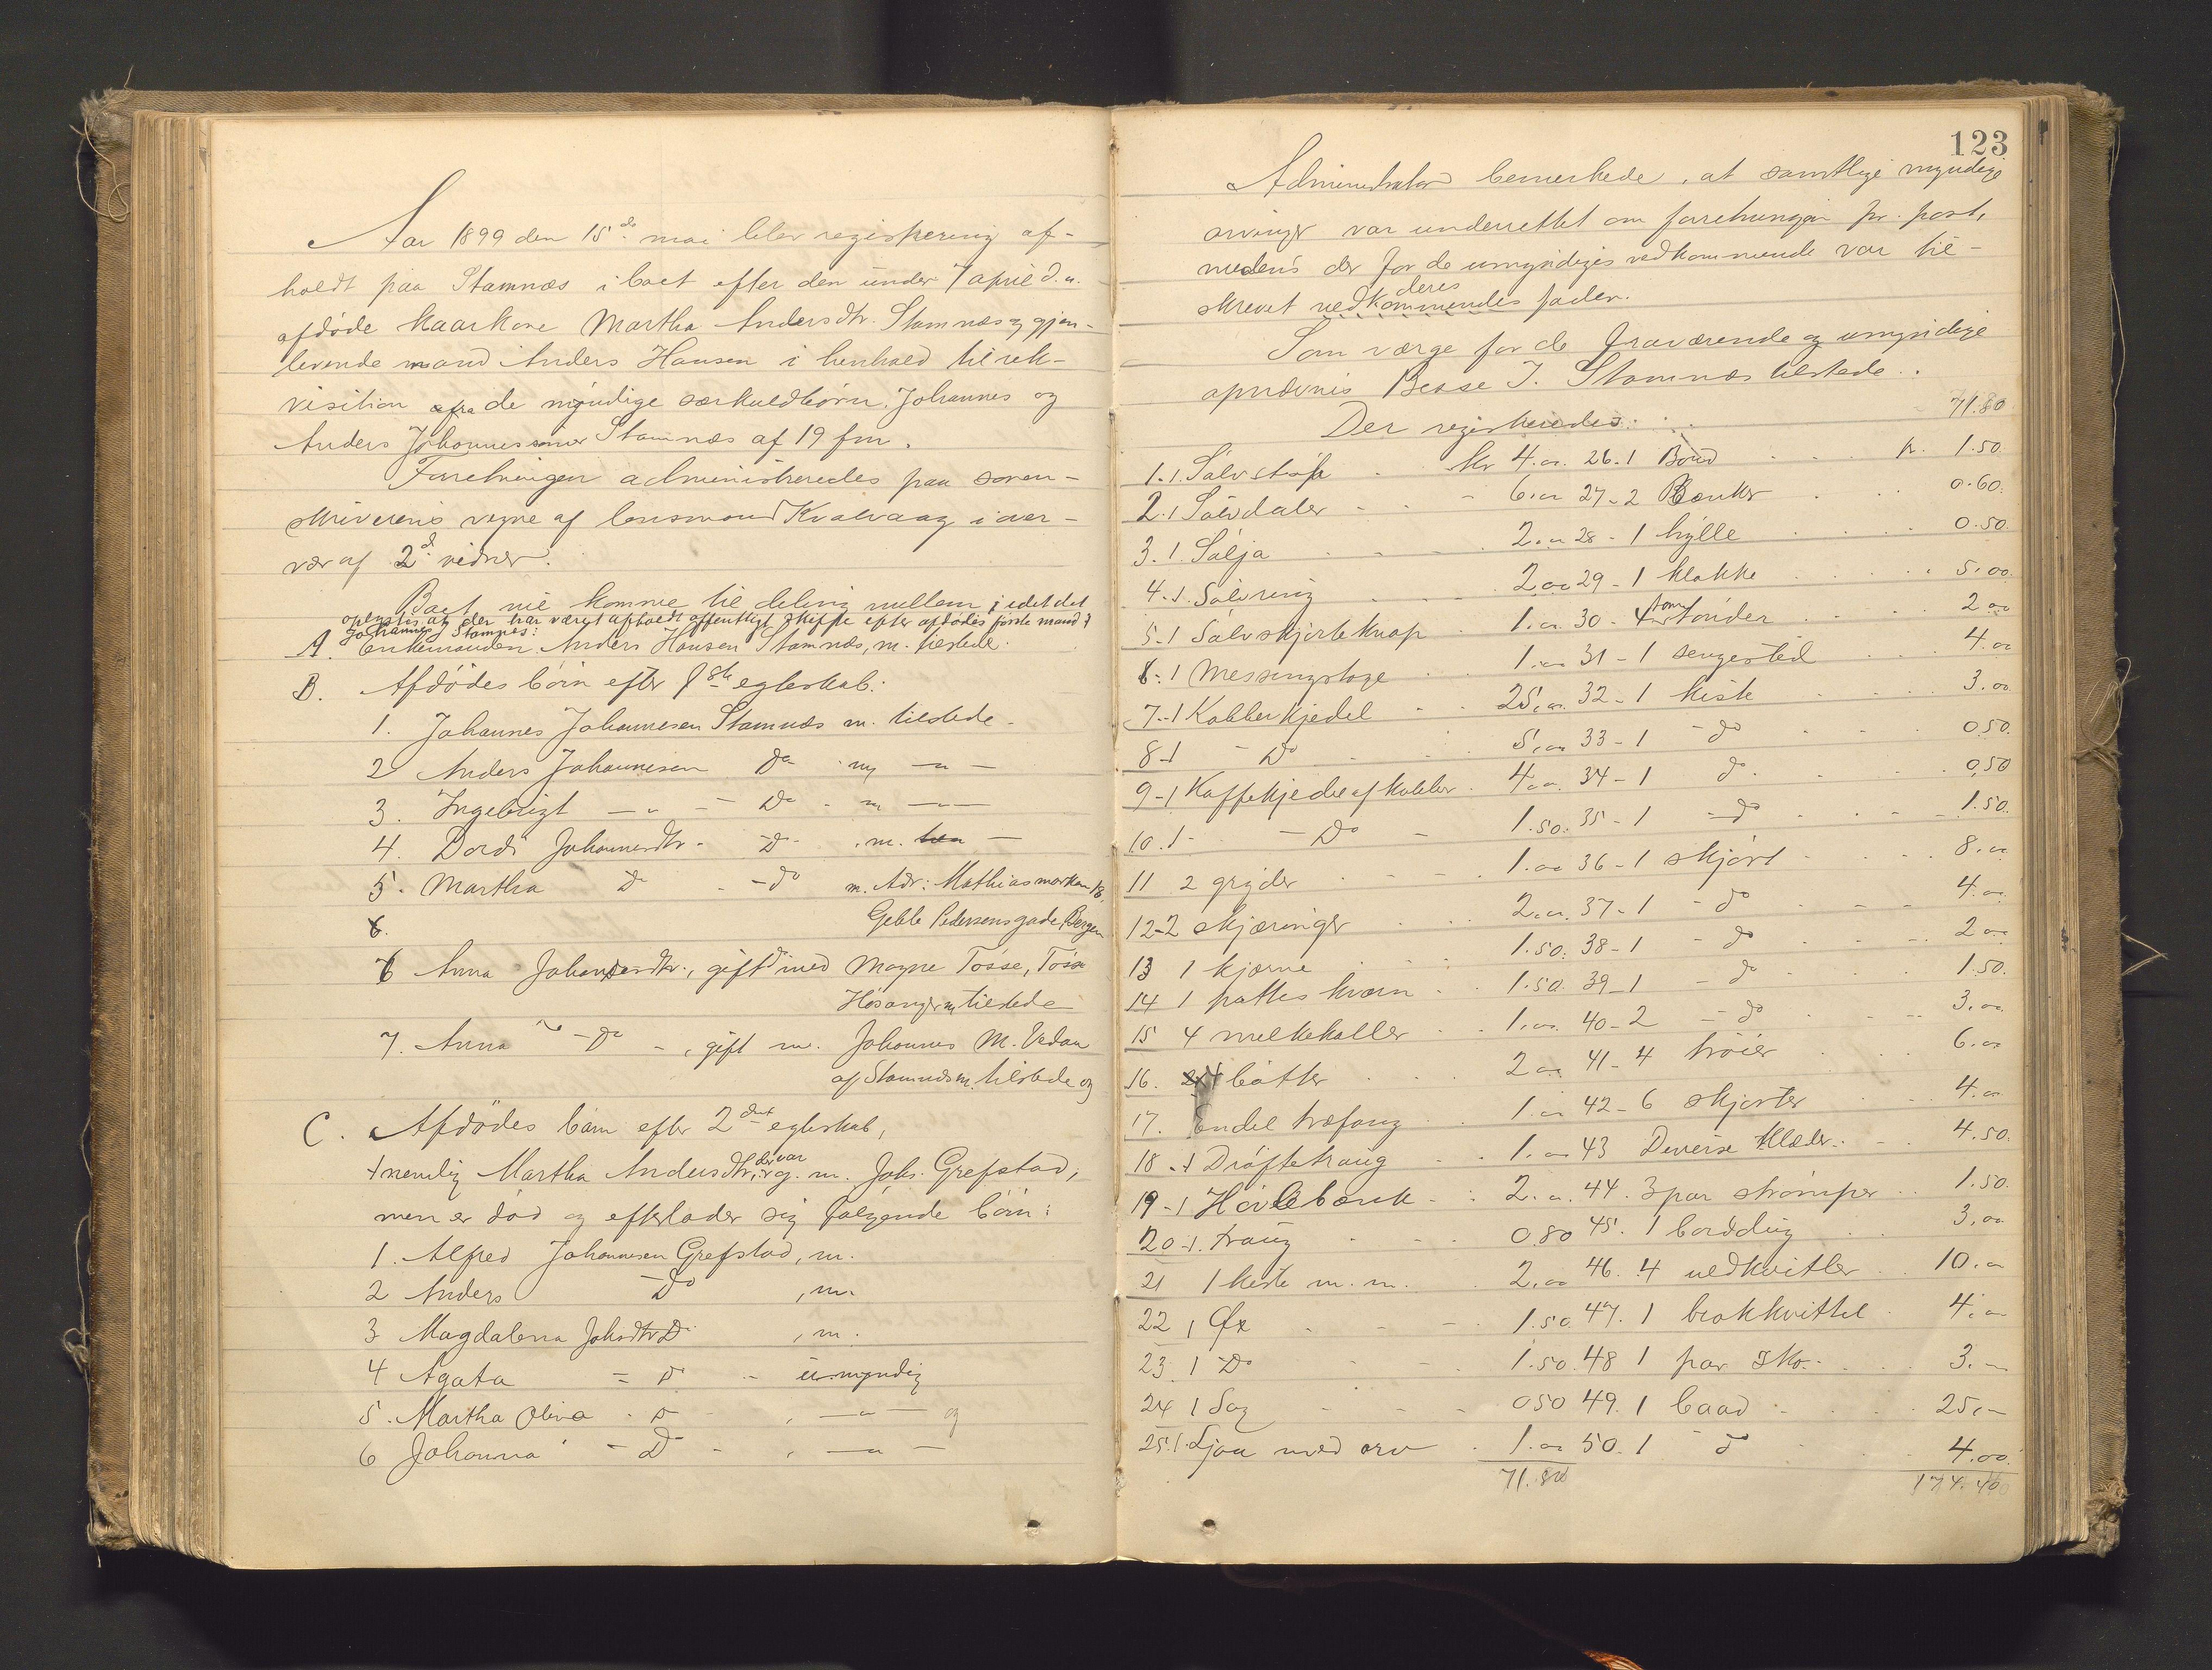 Aar 1899 den 15de mai blev registrering af-
holdt paa Stamnæs i boet efter den under 7 april d.a.
afdøde kaarkone Martha Andersdtr. Stamnæs og gjen-
levende mand Anders Hansen i henhold til rek-
visition fra de myndige særkuldbørn Johannes og
Anders Johannessøner Stamnæs af 19 f.m.
Forretningen administreredes paa soren-
skriverens vegne af lensmand Kvalvaag i over-
vær af 2de vidner.
Boet vil komme til deling mellem, idet det
oplystes at der har været afholdt offentligt skifte efter afdødes første mand
Johannes Stamnes:
A. Enkemanden Anders Hansen Stamnæs, m. tilstede.
B. Afdødes børn efter 1ste egteskab:
1. Johannes Johannesen Stamnæs m. tilstede.
2 Anders Johannesen Do my — " —
3. Ingebrigt — " — Do - m — " —
4. Dordi Johannesdtr. - Do - . m. —
5. Martha Do - - do m. Adr: Mathiasmarken 18.
6. Geble Pedersens gade, Bergen
6 Anna Johannesdtr., gift med Mogne Tosse, Tosse
Hosanger m tilstede
7. Anna — Do - , gift m. Johannes M. Vedaa
af Stamnæs m. tilstede og
C. Afdødes børn efter 2det egteskab,
nemlig Martha Andersdtr., der var g. m. Johs. Grefstad,
men er død og efterlader sig følgende børn:
1. Alfred Johannesen Grefstad, m.
2 Anders - Do , m.
3 Magdalena Johsdtr Do , m.
4 Agata = Do - umyndig
5. Martha Oliva - Do , — " — og
6 Johanna - Do - , — " —
123
Administrator bemerkede, at samtlige myndige
arvinger var underrettet om forretningen pr. post,
medens der for de umyndiges vedkommende var til-
skrevet deres vedkommendes fader.
Som værge for de fraværende og umyndige
opnævnis Besse J. Stamnæs tilstede.
Der registreredes: 71.80
1. 1. Sølvstøp . kr 4.oo 26. 1 Bord . . . kr. 1.50.
2. 1 Sølvdaler - - - 6.oo 27 - 2 Bænker . . . 0.60.
3. 1. Sølja . - - . 2.oo 28 - 1 hylle . . . 0.50.
4. 1. Sølvring - . 2.oo 29 - 1 klokke . . . . 5.oo.
5 - 1 Sølvskjorteknap . 1.oo 30 - 4 tom tønder . . . 2 oo
6 - 1 Messingstage . . 1.oo 31 - 1 sengested . . . 4.oo
7 - 1 Kobberkjedel - - 25.oo. 32 - 1 kiste . . . 3.oo.
8 - 1 - Do . . 5.oo 33 - 1 - do . . . 0.50.
9 - 1 Kaffekjedel af kobber . 4.oo. 34 - 1 do . . . 0.50
10. 1 - - Do - 1.50. 35 - 1 - do . . . 1.50.
11 2 gryder . - . 1.oo 36 - 1 skjørt . . . 8.oo
12 - 2 skjæringer . . 2.oo. 37 - 1 - do - - - 4.oo.
13 1 kjærne . . . 1.50. 38 - 1 - do . . . 2 oo
14 1 pottes kværn . . 1.50. 39 - 1 - do . . . 1.50.
15 4 melkekoller . . 1.oo. 40 - 2 - do . . - 3.oo.
16. 4 bøtter . . . 2 oo 41 - 4 trøier . . 6.oo
17. Endel træfang . . 1.oo 42 - 6 skjorter . . 4.oo
18 - 1 Drøftetraug . . 1.oo 43 Diverse klæder . - . 4.50.
19 - 1 Høvlebænk . : 2.oo. 44. 3 par strømper . . 1.50.
20 - 1. traug - - . 0.80 45. 1 borddug . . 3.oo
21 1 kiste m. m. . 2.oo 46. 4 uldkvitler . . 10.oo
22 1 Øx . - - . 1.50. 47. 1 brokkvittel . 4.oo
23. 1 Do . - - . 1.50. 48 1 par Sko. . . . 3.—
24 1 Sag - - - 0.50 49. 1 baad . . . 25.—
25. 1. Ljaa med orv . 1.oo 50. 1 - do . . 4.oo.
71.80 174.40